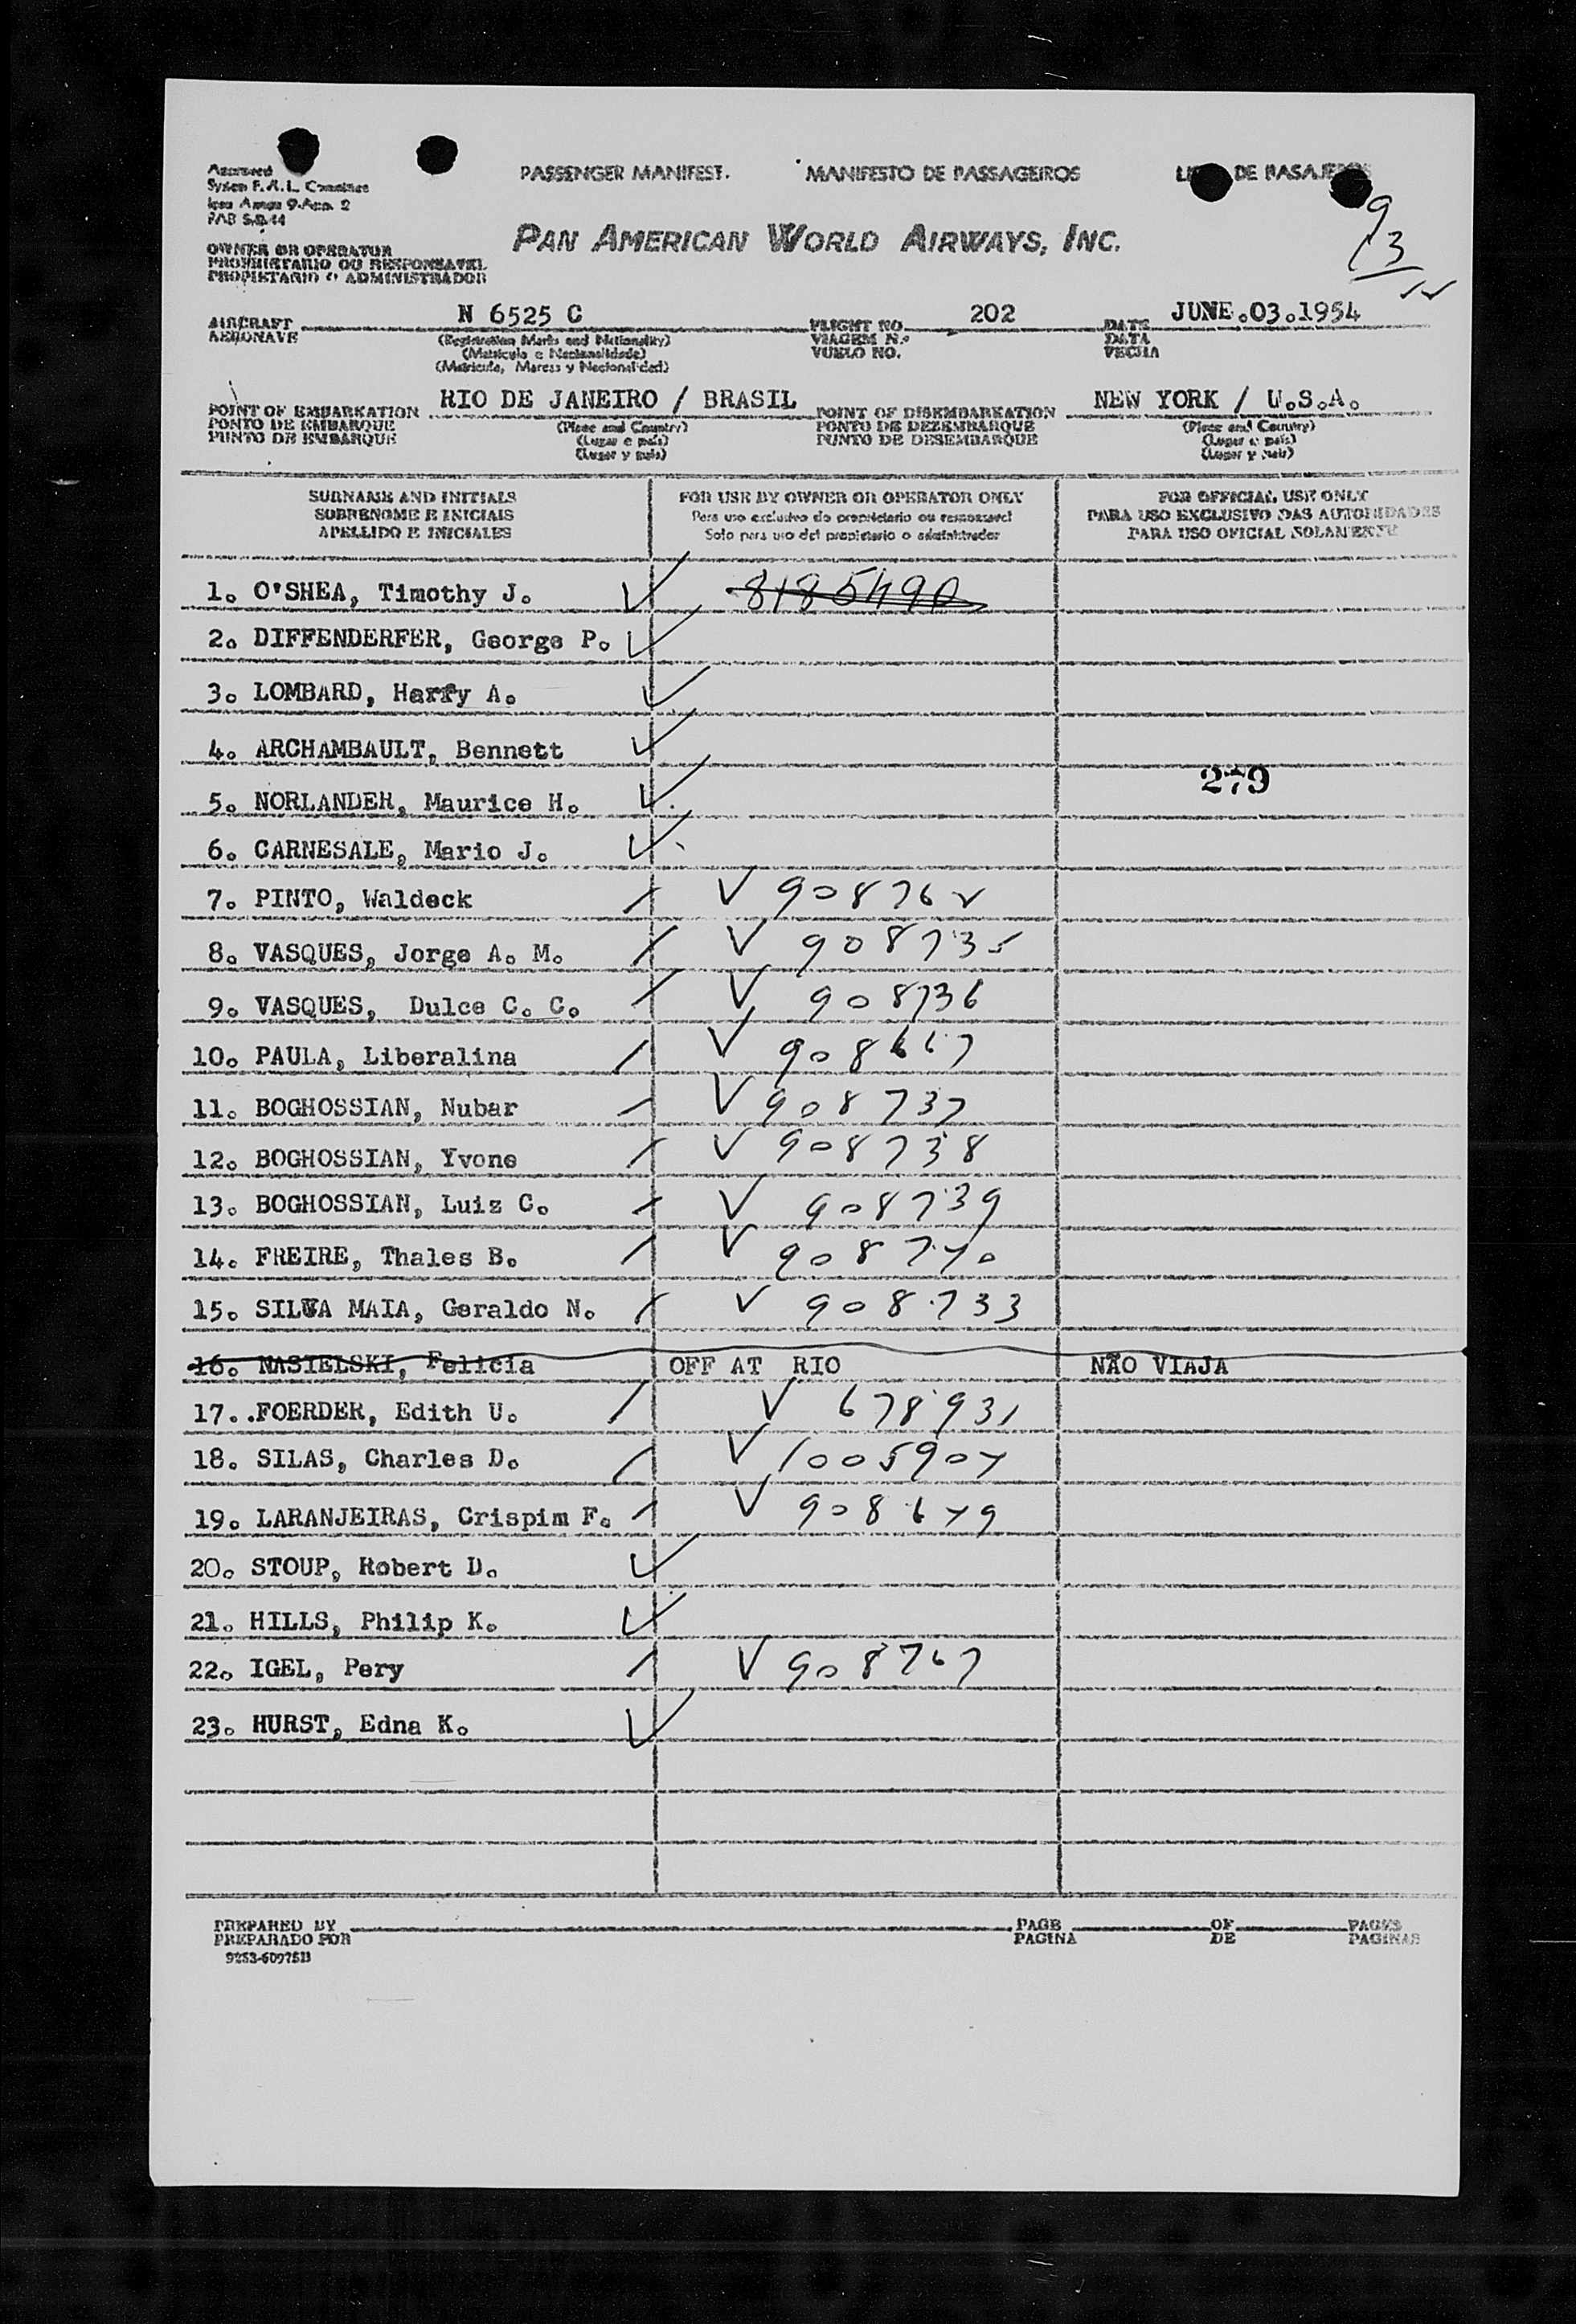 Approved
PASSENGER MANIFEST. MANIFESTO DE PASSAGEIROS DE PASAJEROS
System F. A. L. Committee
Icao Annex 9-App. 2
9
13
OWNER OR OPERATOR
PROPRIETARIO OU RESPONSAVEL
PROPIETARIO O ADMINISTRADOR
PAN AMERICAN WORLD AIRWAYS, INC.
AIRCRAFT N 6525 C FLIGHT NO. 202 DATE JUNE.03.1954
AERONAVE (Registration Marks and Nationality) VIAGEM N.º DATA
(Matricula e Nacionalidade) VUELO NO. FECHA
(Matricula, Marcas y Nacionalidad)
POINT OF EMBARKATION RIO DE JANEIRO / BRASIL POINT OF DISEMBARKATION NEW YORK / U.S.A.
PONTO DE EMBARQUE (Place and Country) PONTO DE DEZEMBARQUE (Place and Country)
PUNTO DE EMBARQUE (Lugar e país) PUNTO DE DESEMBARQUE (Lugar e país)
(Lugar y país) (Lugar y país)
SURNAME AND INITIALS FOR USE BY OWNER OR OPERATOR ONLY FOR OFFICIAL USE ONLY
SOBRENOME E INICIAIS Para uso exclusivo do proprietario ou responsavel PARA USO EXCLUSIVO DAS AUTORIDADES
APELLIDO E INICIALES Solo para uso del propietario o administrador PARA USO OFICIAL SOLAMENTE
1. O'SHEA, Timothy J. 8185490
2. DIFFENDERFER, George P.
3. LOMBARD, Harry A.
4. ARCHAMBAULT, Bennett
279
5. NORLANDER, Maurice H.
6. CARNESALE, Mario J.
7. PINTO, Waldeck 908762
8. VASQUES, Jorge A. M. 908735
9. VASQUES, Dulce C. C. 908736
10. PAULA, Liberalina 908667
11. BOGHOSSIAN, Nubar 908737
12. BOGHOSSIAN, Yvone 908738
13. BOGHOSSIAN, Luiz C. 908739
14. FREIRE, Thales B. 908740
15. SILVA MAIA, Geraldo N. 908733
16. NASIELSKI, Felicia OFF AT RIO NÃO VIAJA
17. .FOERDER, Edith U. 678931
18. SILAS, Charles D. 1005904
19. LARANJEIRAS, Crispim F. 908649
20. STOUP, Robert D.
21. HILLS, Philip K.
22. IGEL, Pery 908767
23. HURST, Edna K.
PREPARED BY PAGE OF PAGES
PREPARADO POR PAGINA DE PAGINAS